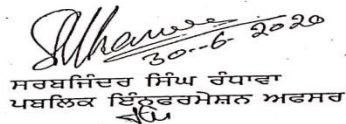 30-6-2020
ਸਰਬਜਿੰਦਰ ਸਿੰਘ ਰੰਧਾਵਾ
ਪਬਲਿਕ ਇੰਨਫਰਮੇਸ਼ਨ ਅਫਸਰ